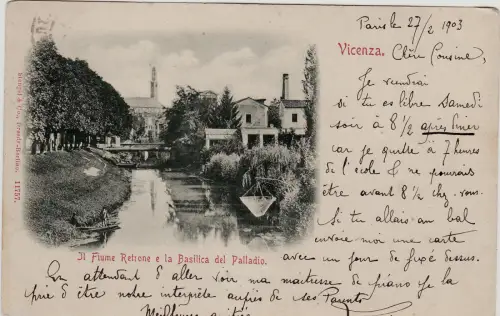 Paris le 27/2 1903
Vicenza.
Chère Cousine,
Je viendrai
si tu es libre Samedi
soir à 8 1/2 après diner
car je quitte à 7 heures
de l'école & ne pourais
être avant 8 1/2 chez vous.
Si tu allais au bal
envoie moi une carte
avec un jour de fixé dessus.
En attendant d'aller voir ma maitresse de piano je la
prie d'être notre interprète auprès de ses Parents
Meilleures amitiés
Il Fiume Retrone e la Basilica del Palladio.
11757.